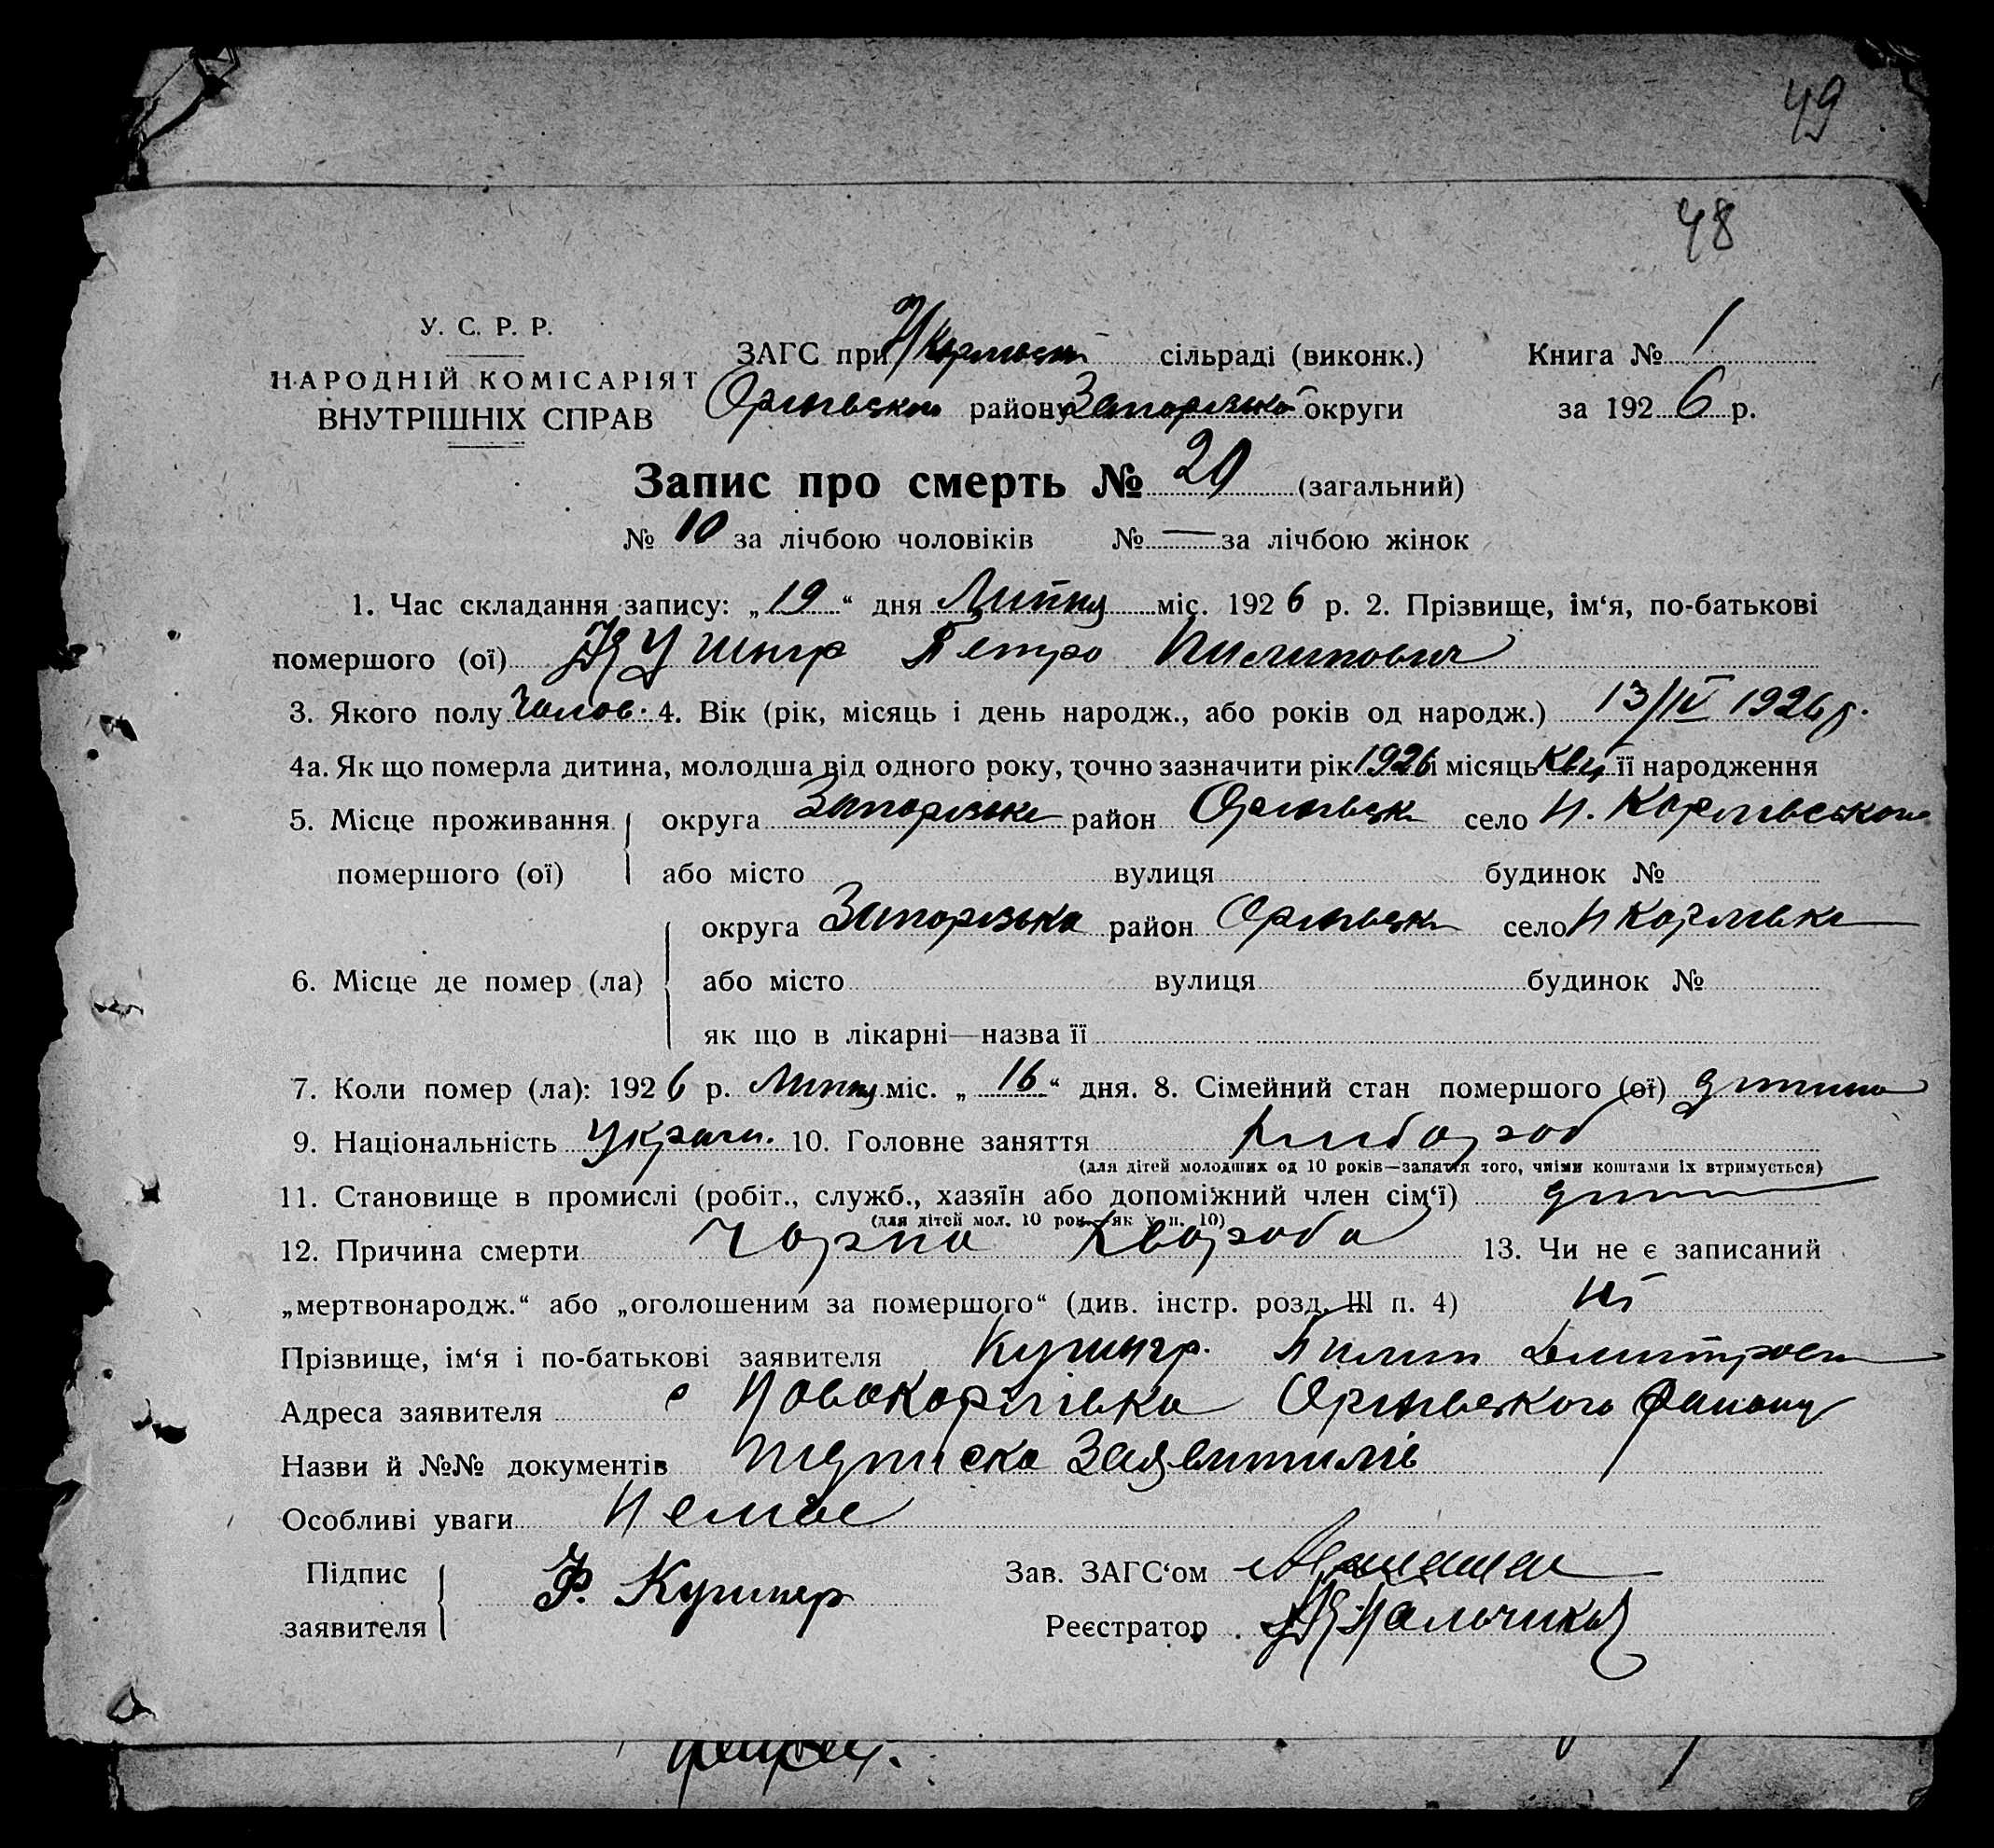 49
48
У. С. Р. Р.
НАРОДНІЙ КОМІСАРІЯТ
ВНУТРІШНІХ СПРАВ
ЗАГС при сільраді (виконк.)
Оріхівського району Запорізької округи
Книга № 1
за 1926 р.
Запис про смерть № 20 (загальний)
№ 10 за лічбою чоловіків № — за лічбою жінок
1. Час складання запису: „19“ дня Липня міс. 1926 р. 2. Прізвище, ім‘я, по-батькові
помершого (ої) Петро Пилипович
3. Якого полу Чолов. 4. Вік (рік, місяць і день народж., або років од народж.) 13/IV 1926 р.
4а. Як що померла дитина, молодша від одного року, точно зазначити рік 1926 і місяць Квіт її народження
5. Місце проживання помершого (ої) округа Запорізька район Оріхівськ село Н. Карлівського
або місто вулиця будинок №
6. Місце де помер (ла) округа Запорізька район Оріхівськ село Н Карлівка
або місто вулиця будинок №
як що в лікарні—назва її
7. Коли помер (ла): 1926 р. Липня міс. „16“ дня. 8. Сімейний стан помершого (ої) дитина
9. Національність Україн. 10. Головне заняття хлібороб
(для дітей молодших од 10 років—заняття того, чиїми коштами їх втримується)
11. Становище в промислі (робіт., служб., хазяїн або допоміжний член сім‘ї)
(для дітей мол. 10 рок.—як у п. 10)
12. Причина смерти хвороба 13. Чи не є записаний
„мертвонародж.“ або „оголошеним за помершого“ (див. інстр. розд. III п. 4) Ні
Прізвище, ім‘я і по-батькові заявителя Пилип
Адреса заявителя с Новокарлівка Оріхівського району
Назви й №№ документів підписка Заявителів
Особливі уваги Немає
Підпис заявителя Ф. Кушнір
Зав. ЗАГС‘ом
Реєстратор